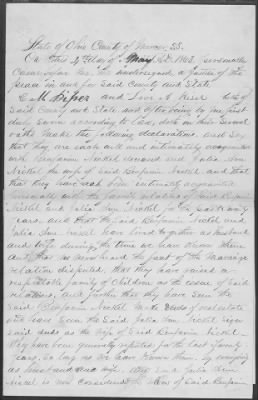 State of Ohio County of Mercer, SS.
On this 4th day of May A.D. 1863. personally
Came before me, the undersigned a Justice of the
peace in and for said County and State
C. M. Piper and Levi A. both of
said County and State and after being by me first
duly sworn according to Law, doth on their several
oaths make the following declarations, and say
that they are each well and intimately acquainted
with Benjamin deceased and Julia Ann
the wife of said Benjamin and that
that they have been intimately acquainted
personally with the family relation of said Benjamin
and Julia Ann for the last many
years, and that the said Benjamin and
Julia Ann have lived together as husband
and Wife during the time we have known them
and that we never heard the fact of the Marriage
relation disputed, that they have raised a
respectable family of Children as the issue of said
relations, and further that they have seen the
said Benjamin make deeds of real estate
and have seen the said Julia Ann sign
said deeds as the wife of said Benjamin
They have been generally reputed for the last twenty
years, so long as we have known them, by everybody
as husband and wife. Any said Julia Ann
is now considered the widow of said Benjamin